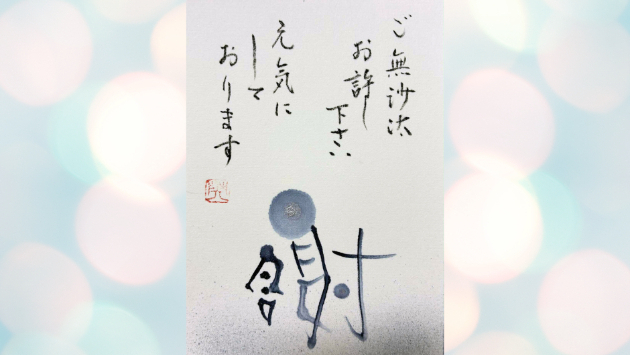 ご無沙汰
お許し
下さい
元気に
して
おります
謝